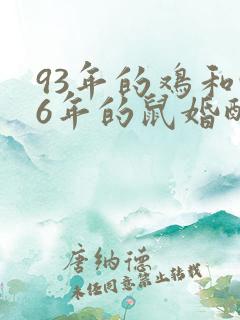 93年的鸡和
6年的鼠婚配
唐纳德
未任同意禁止转载